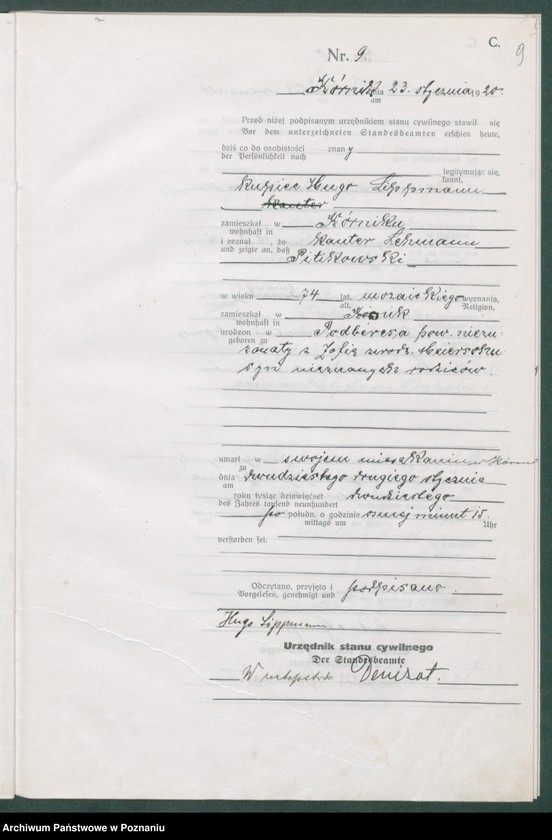 C.
9
Nr. 9.
Kórnik dnia 23. stycznia 1920.
am
Przed niżej podpisanym urzędnikiem stanu cywilnego stawił się
Vor dem unterzeichneten Standesbeamten erschien heute,
dziś co do osobistości znany
der Persönlichkeit nach
legitymując się,
kannt,
kupiec Hugo Lippmann
kantor
zamieszkał w Kórniku
wohnhaft in
i zeznał, że kantor Lehmann
und zeigte an, daß
Pitikowski
w wieku 74 lat, mozaickiego wyznania,
alt, Religion,
zamieszkał w Kórnik
wohnhaft in
urodzon w Podbéresa pow.
geboren zu
żonaty z Zofią urodz.
syn nieznanych rodziców.
umarł w swojem mieszkaniu w
zu
dnia dwudziestego drugiego stycznia
am
roku tysiąc dziewięćset dwudziestego
des Jahres tausend neunhundert
po połudn. o godzinie osmej minut 15.
mittags um Uhr
verstorben sei.
Odczytano, przyjęto i podpisano.
Vorgelesen, genehmigt und
Hugo Lippmann
Urzędnik stanu cywilnego
Der Standesbeamte
W zastępstwie Denizot.
Archiwum Państwowe w Poznaniu